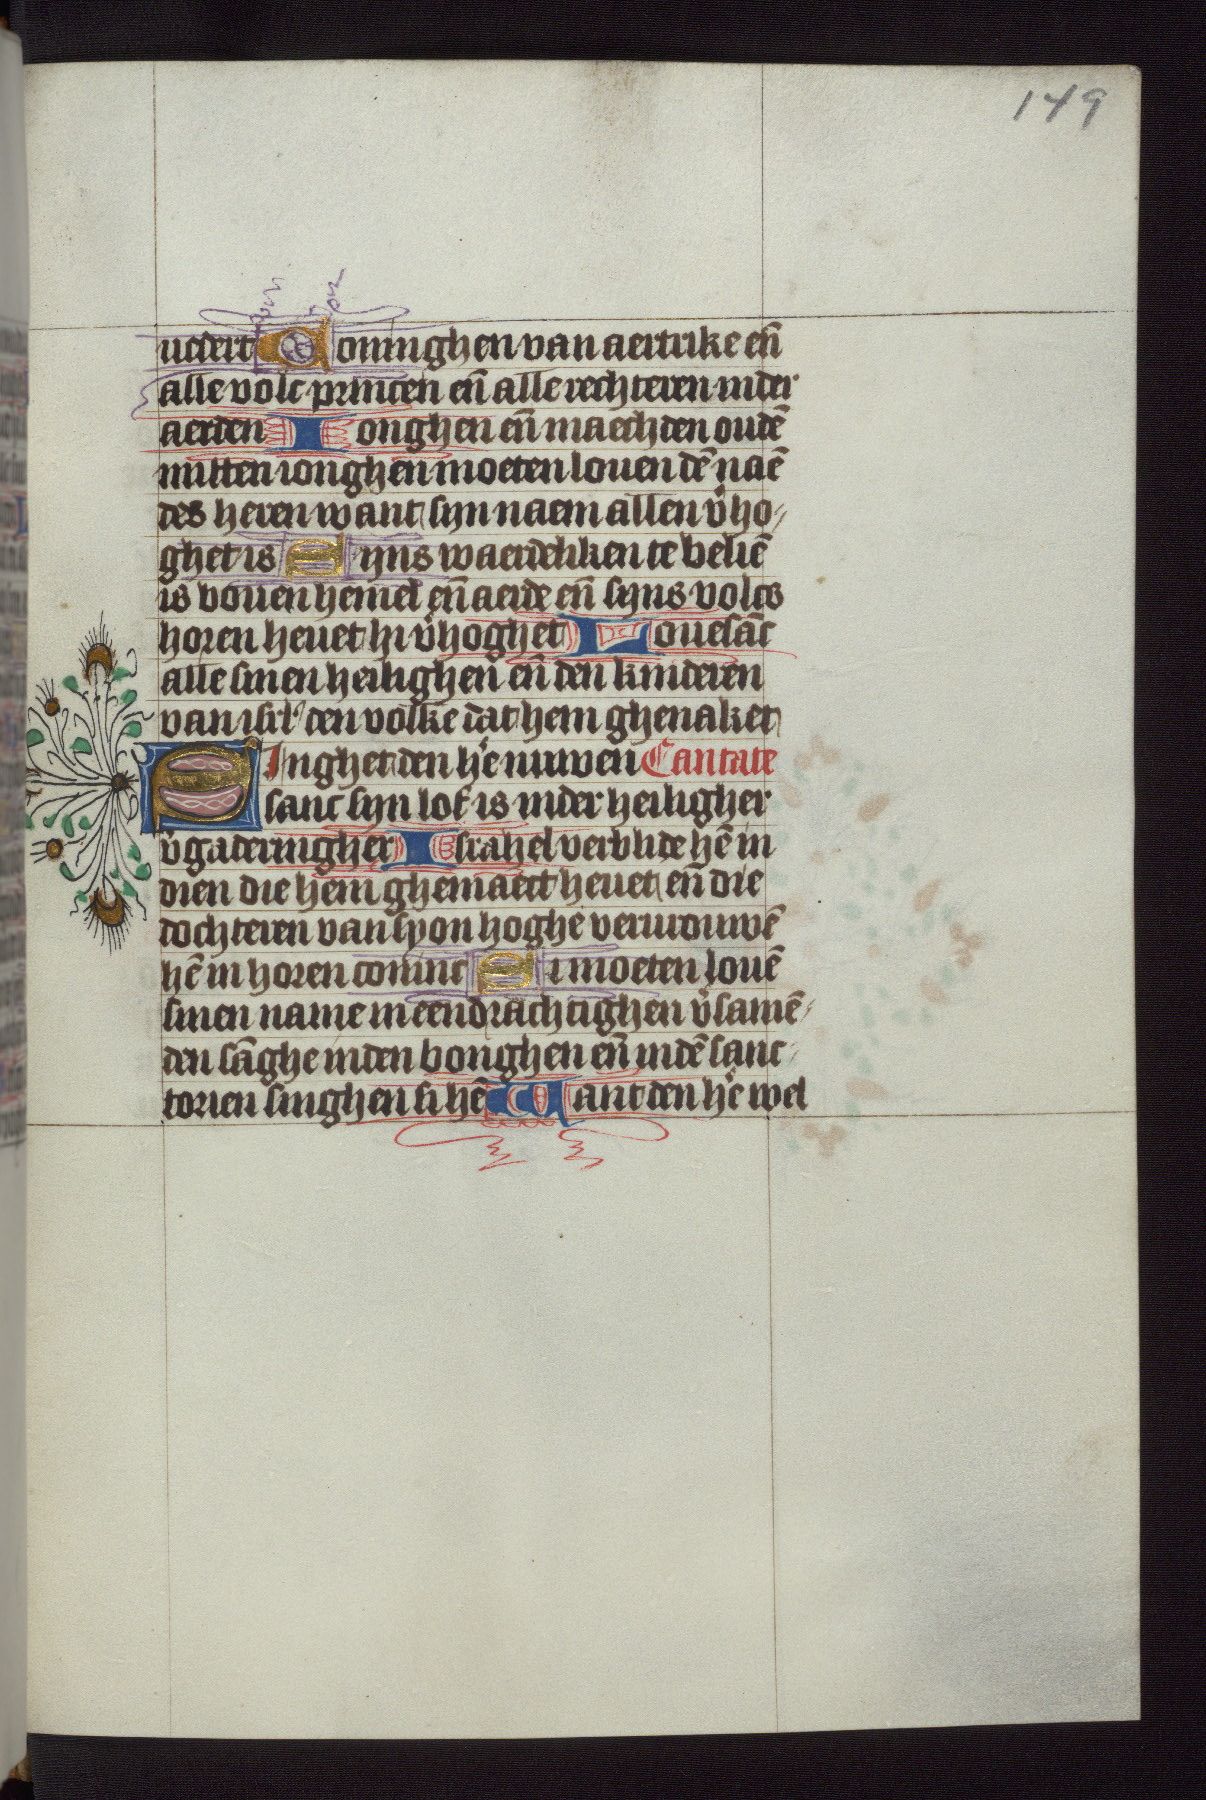 149
uedert Coninghen van aertrike eñ
alle volc princen eñ alle rechteren inder
aerden Ionghen eñ maechden oudē
mitten ionghen moeten louen dē naē
des heren want sijn naem allen v̓ho⸗
ghet is Sijns waerdeliken te beliē
is bouen hemel eñ aerde eñ sijns volcs
horen heuet hi v̓hoghet Louesāc
alle sinen heilighen eñ den kinderen
van isrl' den volke dat hem ghenaket
SInghet den he̓ nuwen Cantate
sanc sijn lof is inder heiligher
v̓gaderingher Israhel verblide hē in
dien die hem ghemaect heuet eñ die
dochteren van syon hoghe verurouwē
hē in horen coninc Si moeten louē
sinen name in eendrachtighen v̓samē⸗
den sāghe inden bonghen eñ indē sanc⸗
torien singhen si hē Want den he̓ wel